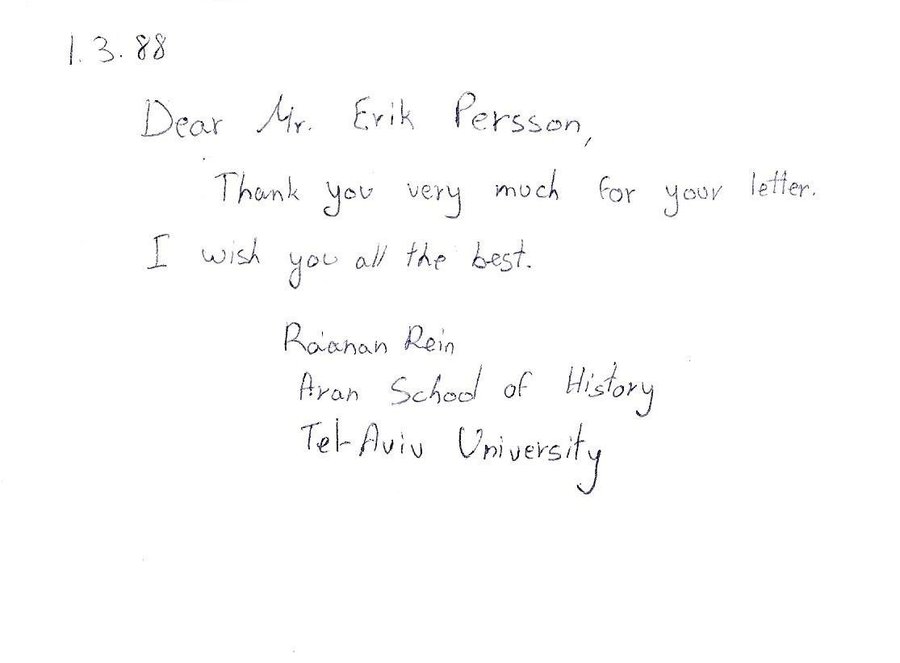 1.3.88
Dear Mr. Erik Persson,
Thank you very much for your letter.
I wish you all the best.
Ra'anan Rein
Aran School of History
Tel-Aviv University